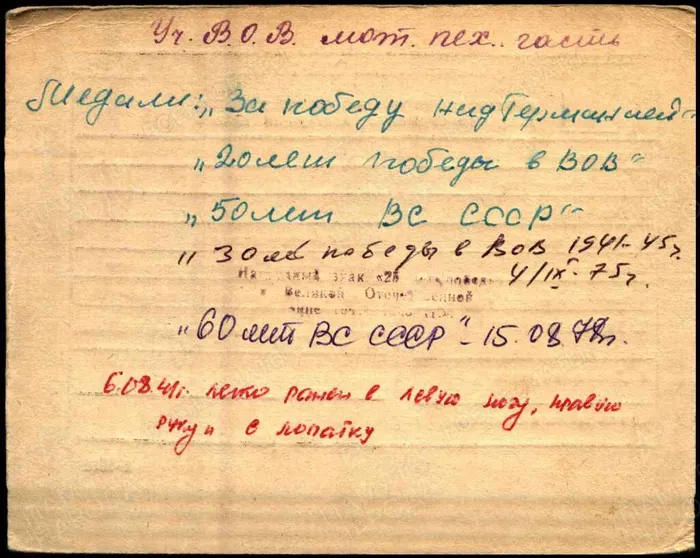 Уч. В.О.В. мот. пех. часть
Медали: „За победу над Германией"
„20 лет победы в ВОВ"
„50 лет ВС СССР"
„30 лет победы в ВОВ 1941-45г.
Нагрудный знак «25 лет победы
4/IX-75г.
в Великой Отечественной
войне
„60 лет ВС СССР" - 15.08.78г.
6.08.41г. легко ранен в левую ногу, правую
руку и в лопатку